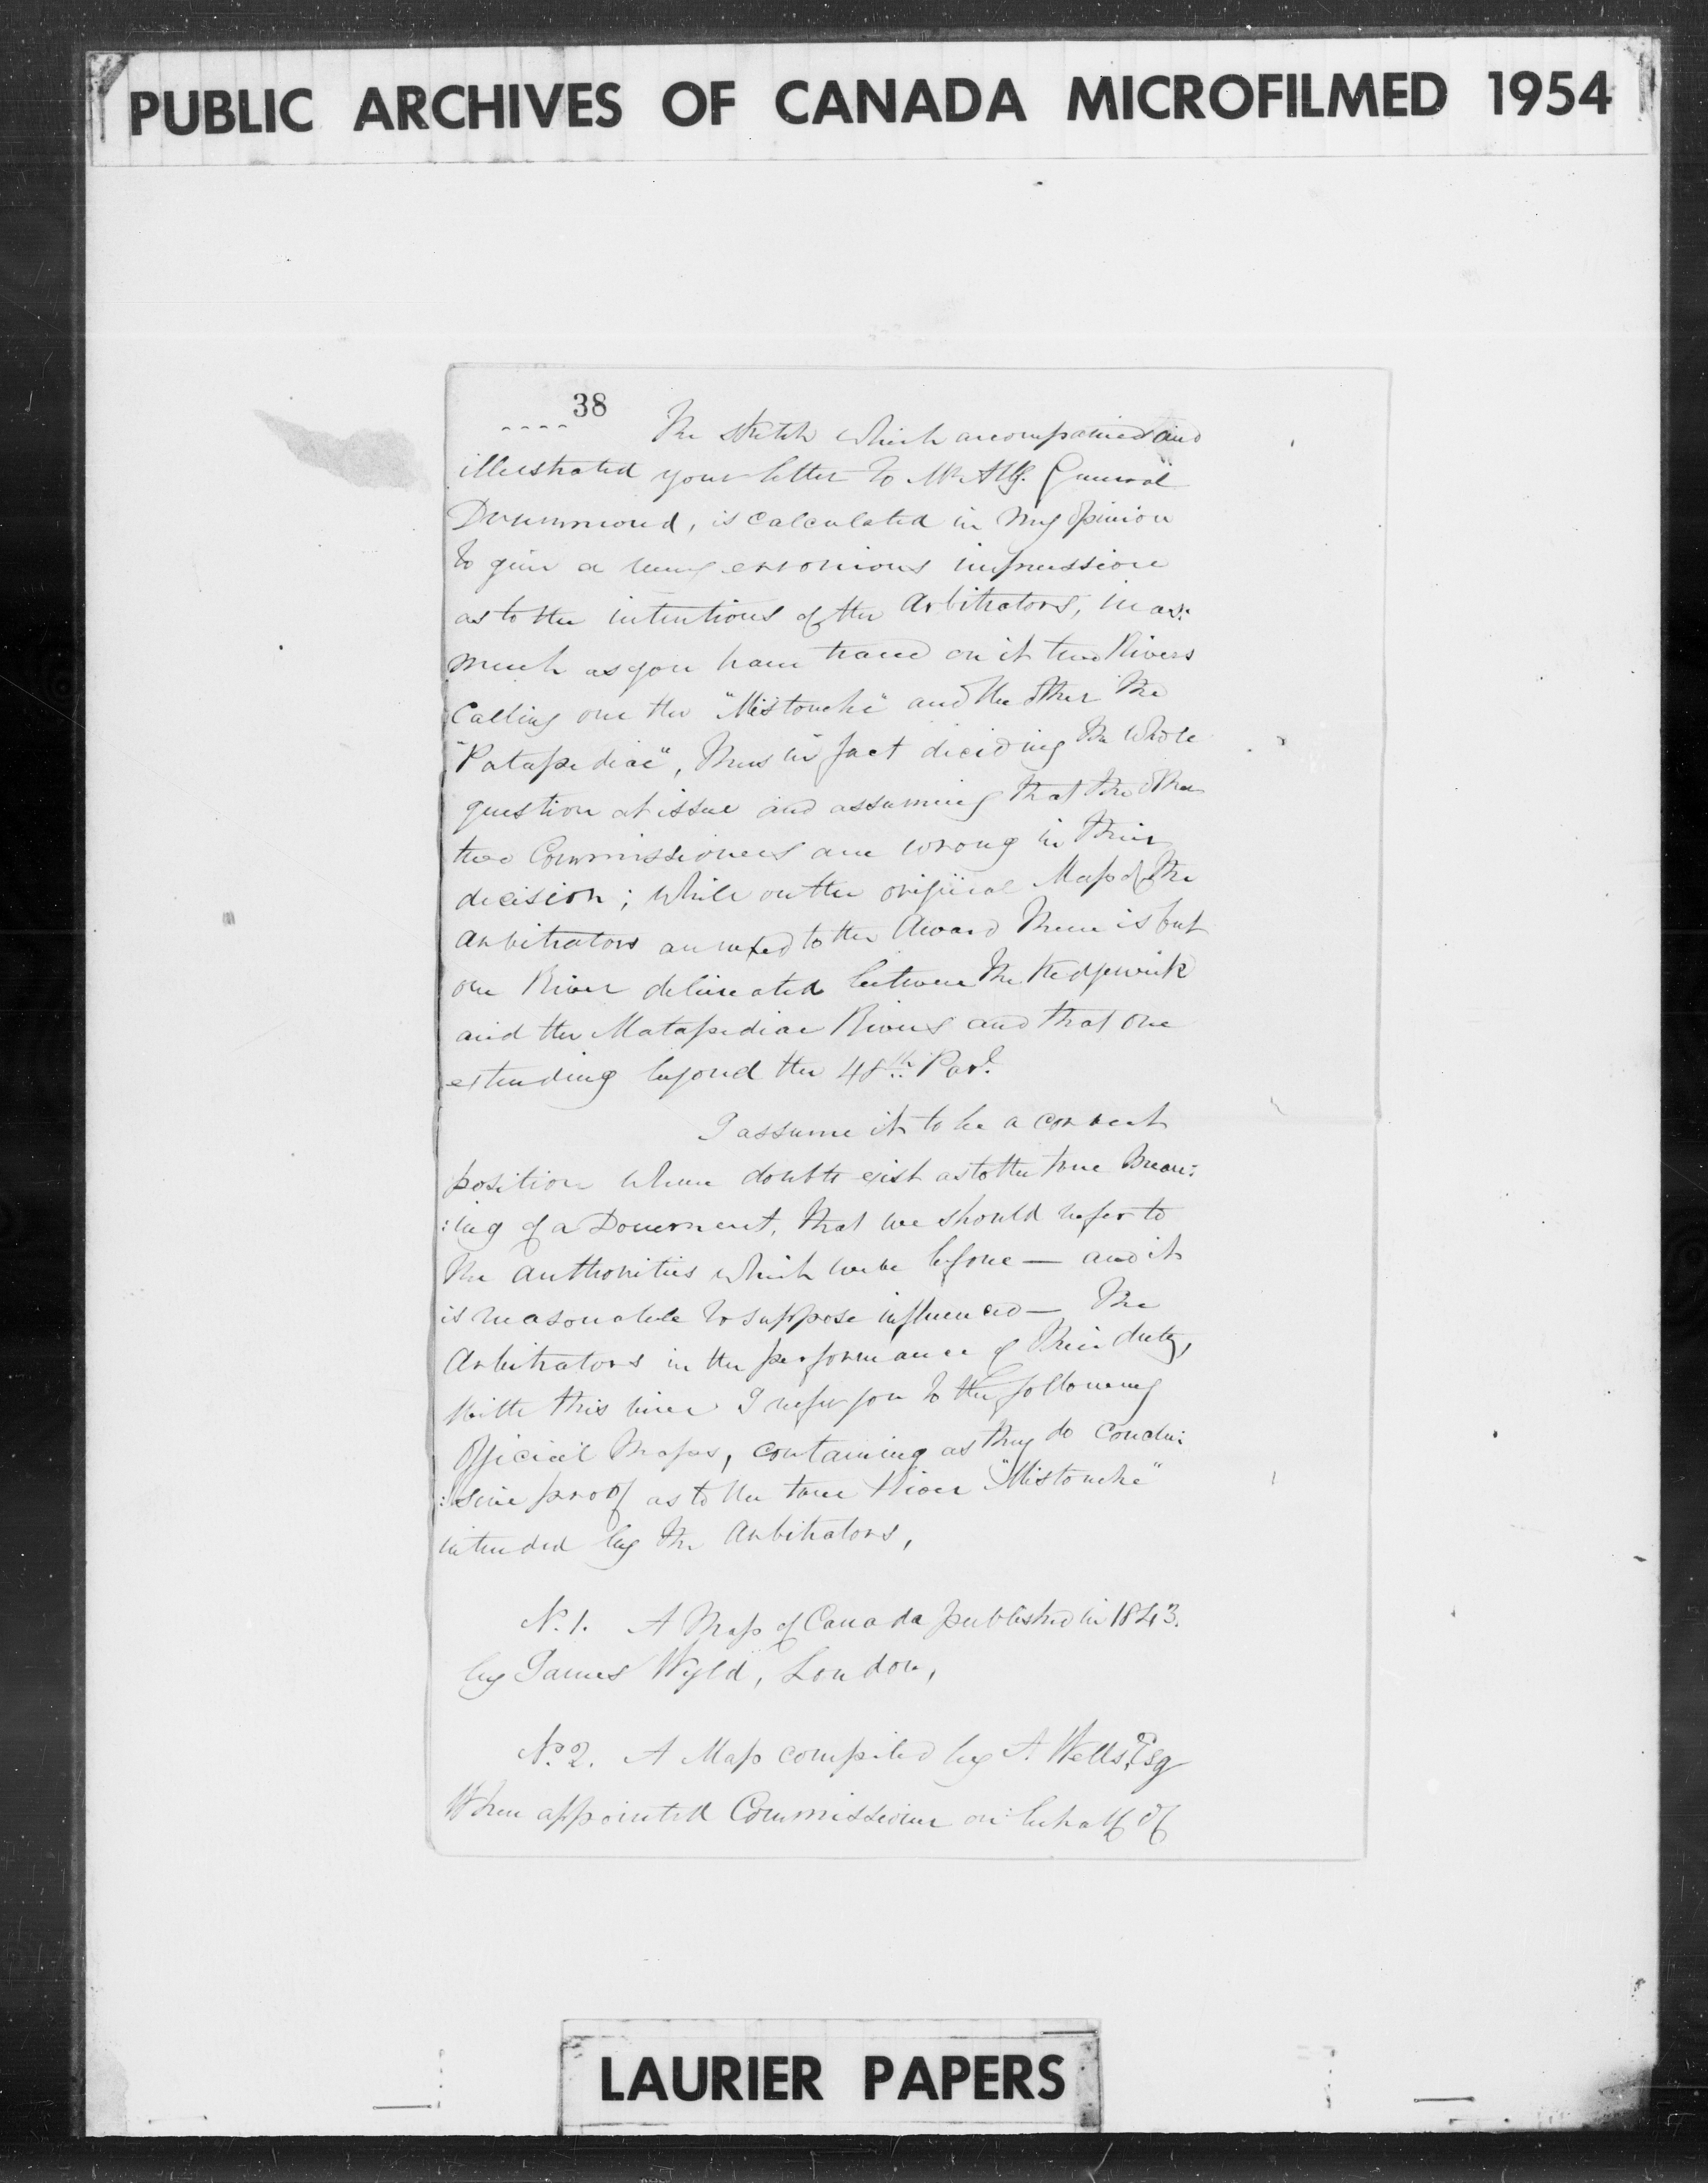 PUBLIC ARCHIVES OF CANADA MICROFILMED 1954
38
The sketch which accompanied and
illustrated your letter to Mr Atty. General
Drummond, is calculated in my opinion
to give a very erronious impression
as to the intentions of the Arbitrators, in as:
much as you have traced on it two Rivers
Calling one the "Mistouche" and the other the
"Patapediac", thus in fact deciding the whole
question at issue and assuming that the other
two Commissioners are wrong in their
decision; while on the original Map of the
Arbitrators annexed to the Award there is but
one River delineated between the Kedgwick
and the Matapediac Rivers and that one
extending beyond the 48th Parl.
I assume it to be a correct
position where doubts exist as to the true mean:
:ing of a Document, that we should refer to
the authorities which were before — and it
is reasonable to suppose influenced — the
Arbitrators in the performance of their duty,
With this view I refer you to the following
Official Maps, containing as they do conclu:
:sive proof as to the true River "Mistouche"
intended by the Arbitrators,
No. 1. A Map of Canada published in 1843.
by James Wyld, London,
No. 2. A Map compiled by A. Wells, Esq
When appointed Commissioner on behalf of
LAURIER PAPERS